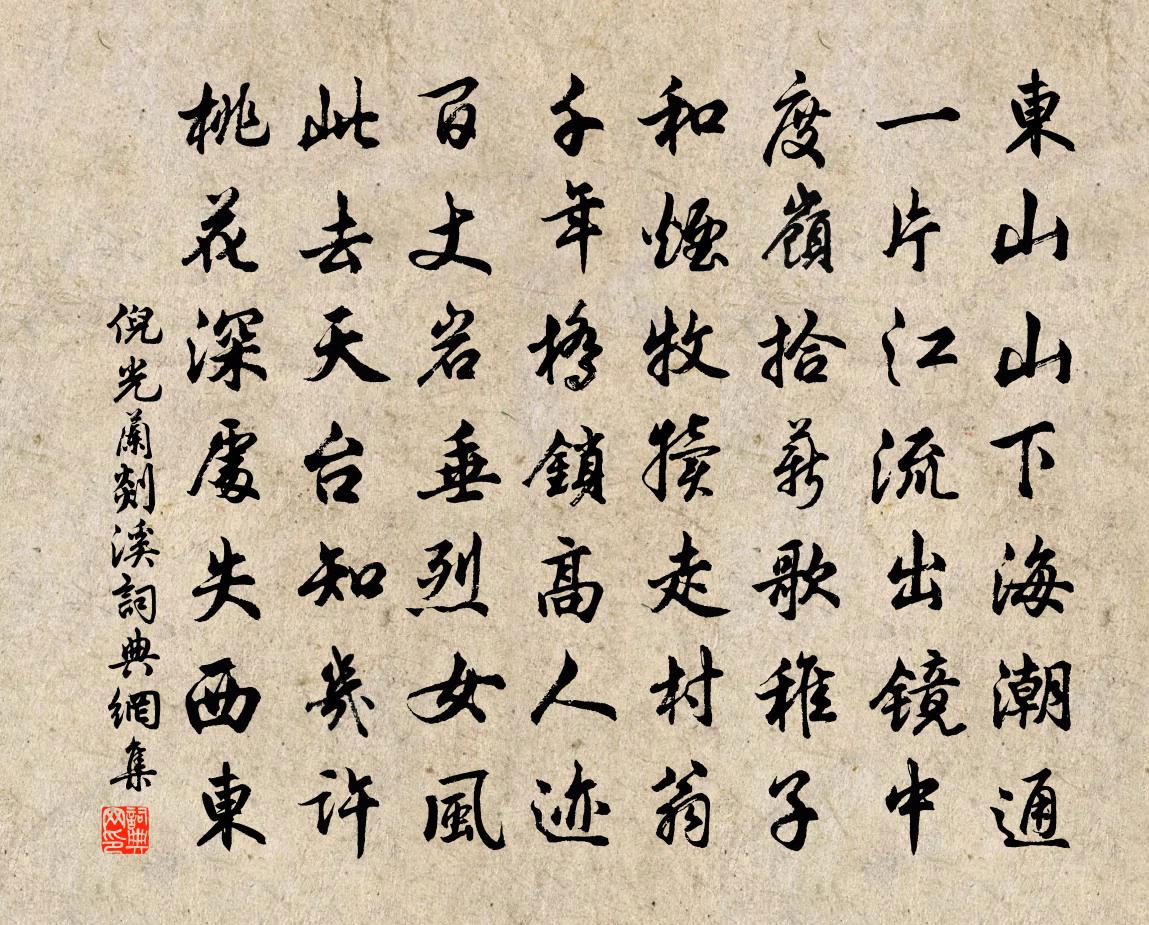 東山山下海潮通
一片江流出鏡中
度嶺拾薪歌稚子
和煙牧犢走村翁
千年橋鎖高人迹
百丈岩垂烈女風
此去天台知幾許
桃花深處失西東
倪光蘭剡溪詞典網集
詞典網印